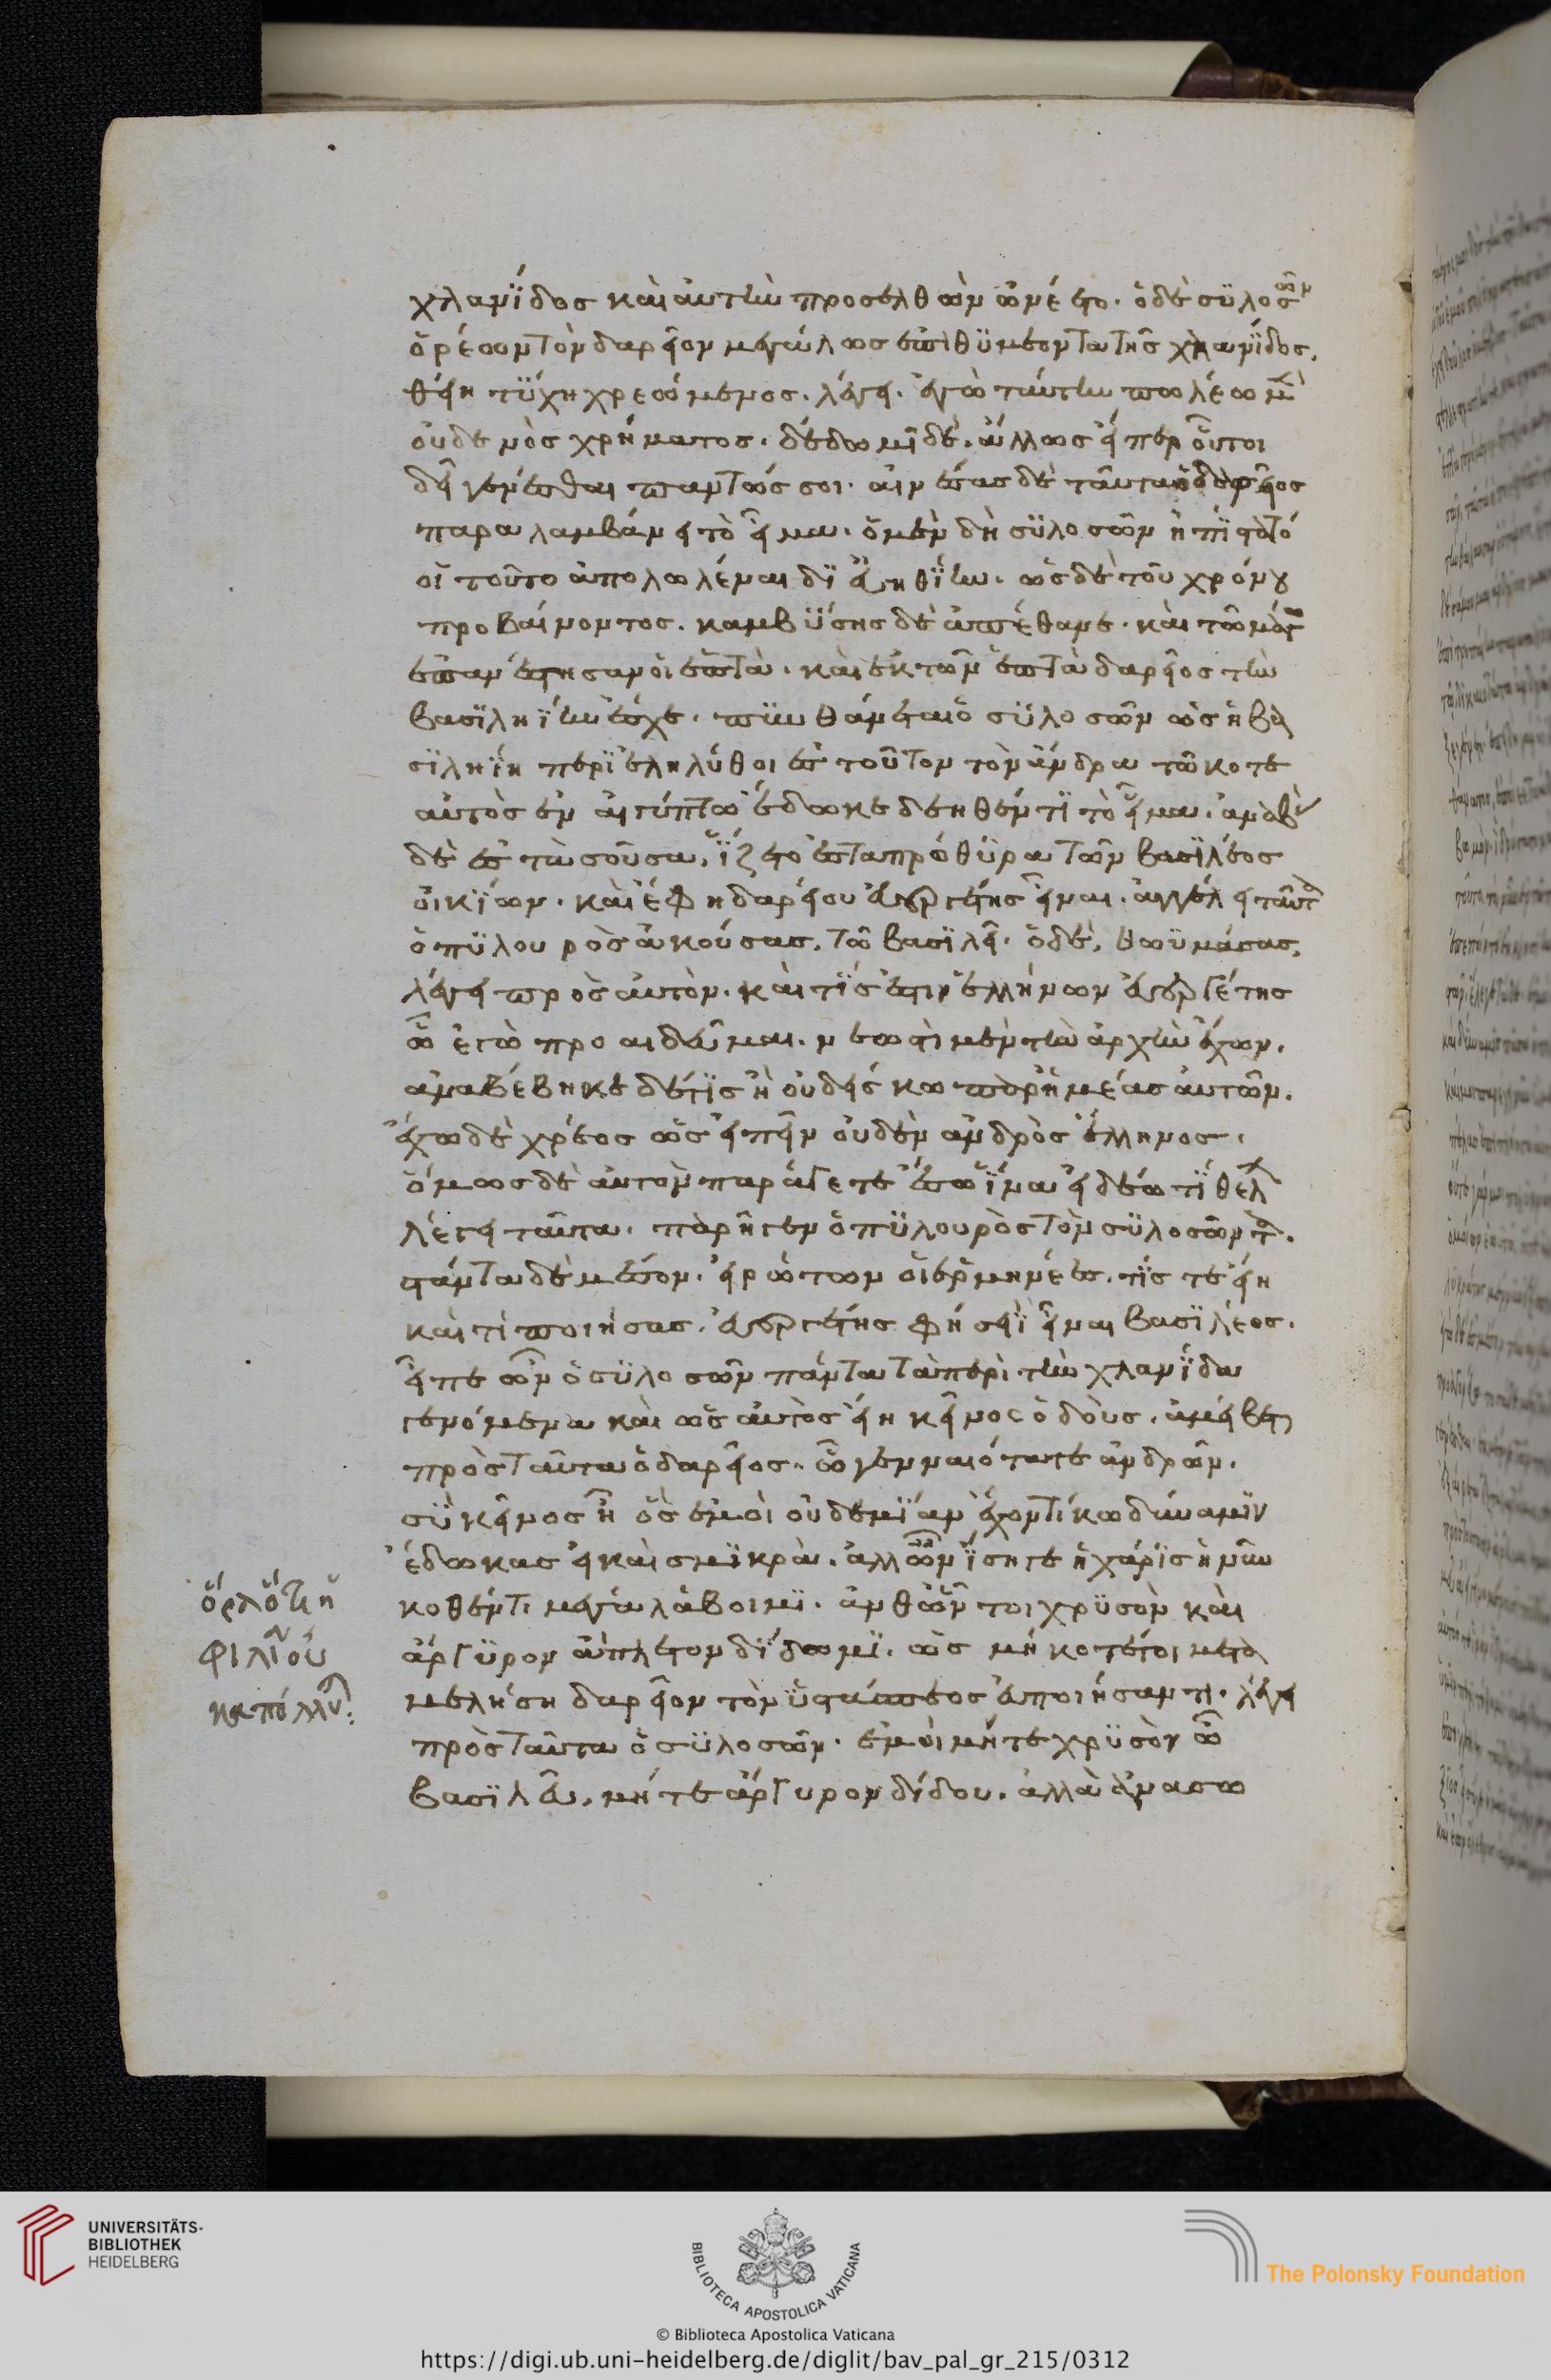 χλαμΐδος καὶ αὐτὴν προσελθὼν ὠνέετο· ὁ δὲ σϋλοσῶν
ὁρέων τὸν δαρεῖον μεγάλως ἐπιθϋμέοντα τῆς χλαμΐδος,
θείη τΰχη χρεώμενος, λέγει, ἐγὼ ταύτην πωλέω μὲν
οὐδενὸς χρήματος, δίδωμι δὲ ἄλλως εἴπερ οὕτω
δεῖ γενέσθαι πάντως σοι· αἰνέσας δὲ ταῦτα ὁ δαρεῖος
παραλαμβάνει τὸ εἷμα· ὁ μὲν δὴ σϋλοσῶν ἠπίστατό
οἱ τοῦτο ἀπολωλέναι δϊ εὐηθΐην· ὡς δὲ τοῦ χρόνου
προβαίνοντος, καμβΰσης δὲ ἀπέθανε· καὶ τῶ μάγω
ἐπανέστησαν οἱ ἑπτὰ· καὶ ἐκ τῶν ἑπτὰ δαρεῖος τὴν
βασϊληΐην ἔσχε, πυνθάνεται ὁ σϋλοσῶν ὡς ἡ βα
σϊληΐη περϊεληλύθοι ἐς τοῦτον τὸν ἄνδρα τῶ κοτε
αὐτὸς ἐν αἰγύπτω ἔδωκε δεηθέντϊ τὸ εἷμα· ἀναβὰς
δὲ ἐς τὰ σοῦσα, ἵζετο ἐς τὰ πρόθϋρα τῶν βασϊλέος
οἰκΐων· καὶ ἔφη δαρείου εὐεργέτης εἶναι· ἀγγέλει ταῦτα
ὁ πϋλουρὸς ἀκούσας, τῶ βασϊλεῖ· ὁ δὲ, θωϋμάσας,
λέγει πρὸς αὐτὸν· καὶ τίς ἐστιν ἑλλήνων εὐεργέτης
ὧ ἐγὼ προαιδεῦμαι, νεωστὶ μὲν τὴν ἀρχὴν ἔχων,
ἀναβέβηκε δέ τϊς ἢ οὐδείς κω παρ ἡμέας αὐτῶν,
ἔχω δὲ χρέος ὡς εἰπεῖν οὐδὲν ἀνδρὸς ἕλληνος,
ὅμως δὲ αὐτὸν παράγετε ἔσω ἵνα εἰδέω τί θέλων
λέγει ταῦτα· παρῆγεν ὁ πϋλουρὸς τὸν σϋλοσῶντα·
στάντα δὲ μέσον, εἰρώτων οἱ ἑρμηνέες, τίς τε εἴη
καὶ τί ποιήσας, εὐεργέτης φησϊ εἶναι βασϊλέος·
εἶπε ὦν ὁ σϋλοσῶν πάντα τὰ περὶ τὴν χλαμΐδα
γενόμενα καὶ ὡς αὐτὸς εἴη κεῖνος ὁ δοὺς· ἀμείβεται
πρὸς ταῦτα ὁ δαρεῖος· ὦ γενναιότατε ἀνδρῶν,
σὺ κεῖνος ἦ ὃς ἐμοὶ οὐδεμΐαν ἔχοντί κω δύναμιν
ἔδωκας εἰ καὶ σμϊκρὰ, ἀλλ ὦν ΐση γε ἡ χάρϊς ἡ νῦν
κοθέντι μέγα λάβοιμϊ· ἀνθ ὧν τοι χρϋσὸν καὶ
ἄργϋρον ἄπλετον δΐδωμϊ, ὡς μή κοτέ τοι μετα
μελήση δαρεῖον τὸν ὑστάσπεος εὖ ποιήσαντι· λέγει
πρὸς ταῦτα ὁ σϋλοσῶν· ἐμοὶ μήτε χρϋσὸν ὦ
βασϊλεῦ, μήτε ἄργυρον δίδου, ἀλλὰ ἀνασω